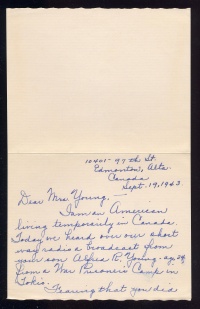 10405-97th St.
Edmonton, Alta.
Canada
Sept. 19, 1943
Dear Mrs. Young,-
I am an American
living temporarily in Canada.
Today we heard over our short
wave radio a broadcast from
your son Alfred R. Young - age 24
from a War Prisoner's Camp in
Tokio.
Fearing that you did